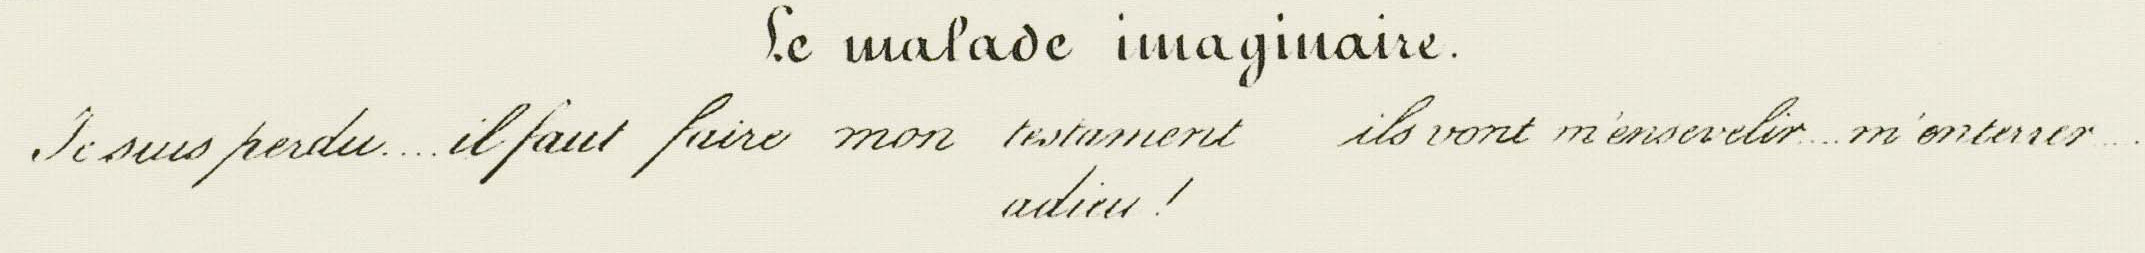 Le malade imaginaire.
Je suis perdu.... il faut faire mon testament ils vont m'ensevelir.... m'enterrer....
adieu !